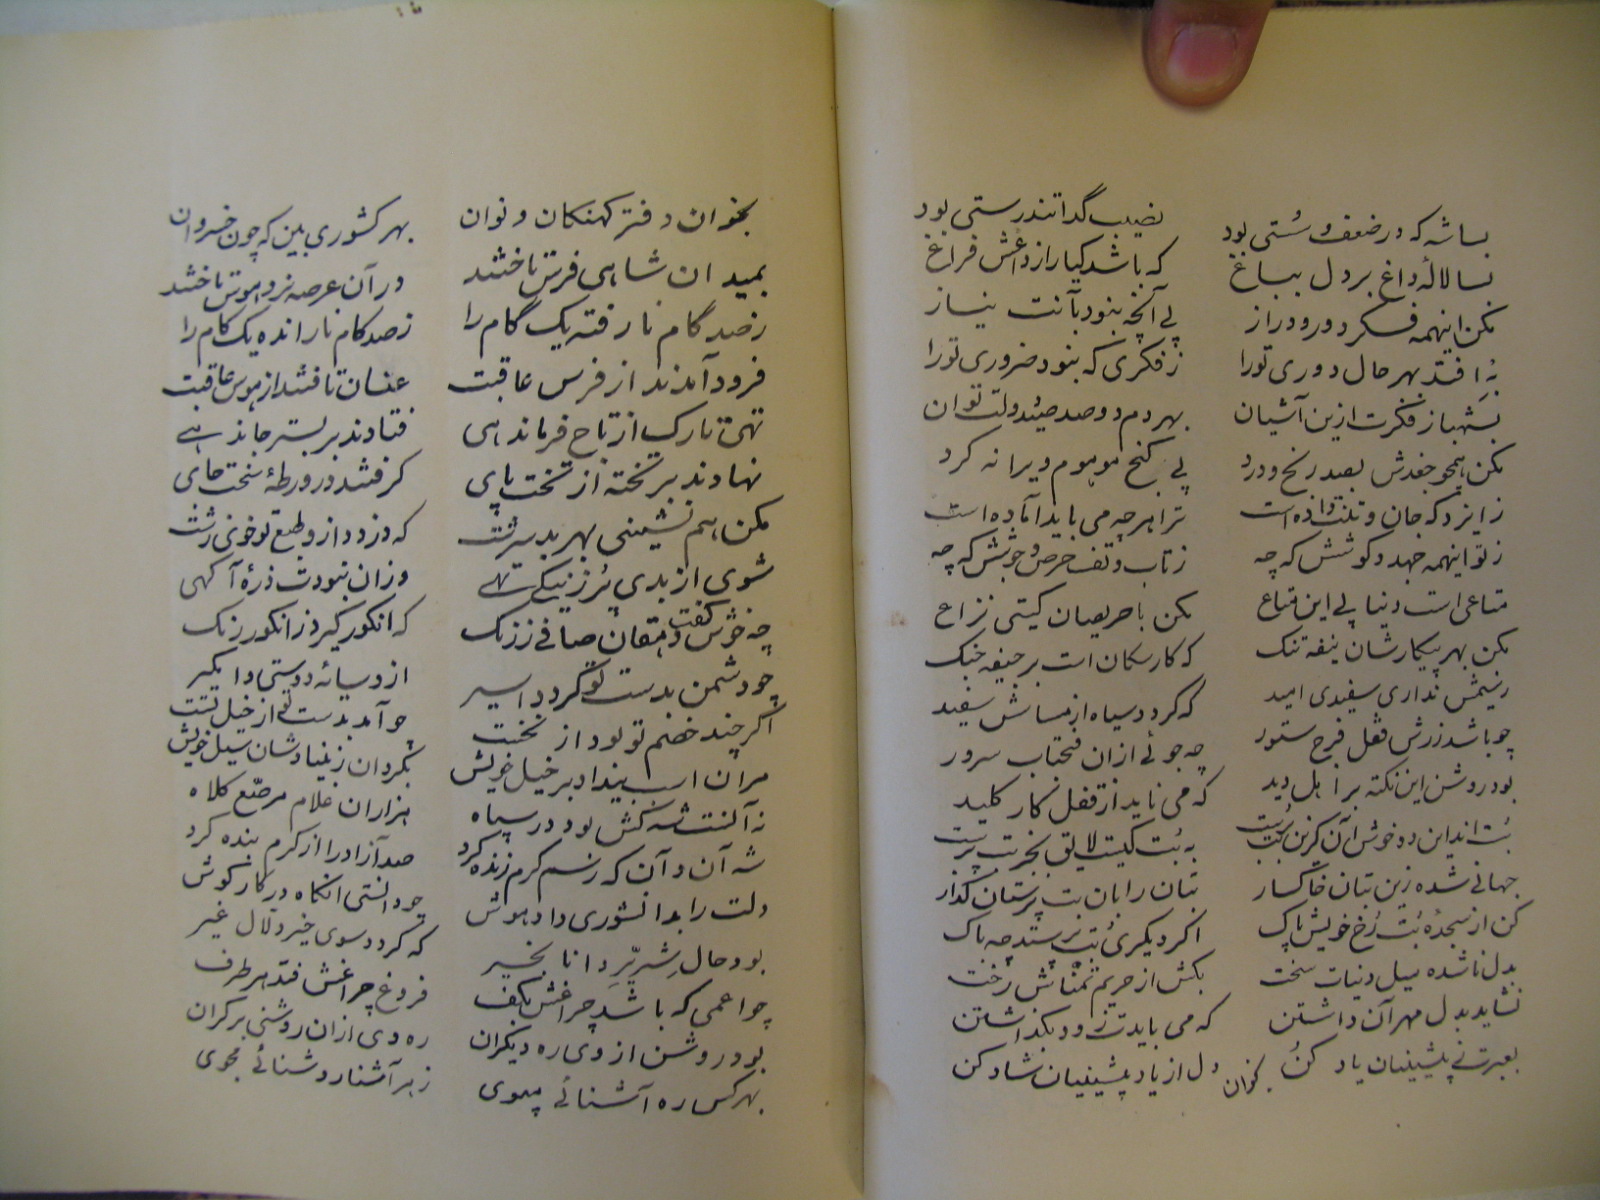 بسا شه که در ضعف و سستی بود نصیب گدا تندرستی بود
بسا لالهٔ داغ بر دل بباغ که باشد گیا را ز داغش فراغ
مکن اینهمه فکر دور و دراز پی آنچه نبود بآنت نیاز
نه افتد بهر حال دوری تو را ز فکری که نبود ضروری تو را
بشهباز فکرت ازین آشیان بهر دم دو صد صید دولت توان
مکن همچو جغدش بصد رنج و درد پی گنج موهوم ویرانه گرد
ز ایزد که جان و تنت داده است ترا هر چه می باید آماده است
ز تو اینهمه جهد و کوشش که چه ز تاب و تف حرص جوشش که چه
متاعی است دنیا پی این متاع مکن با حریصان گیتی نزاع
مکن بهر پیکارشان ینفه تنک که کار سگان است بر جیفه جنک
ز سیمش نداری سفیدی امید که گردد سیاه از مساسش سفید
چو باشد زرش قفل فرج ستور چه جوئی ازان فتحباب سرور
بود روشن این نکته بر اهل دید که می ناید از قفل کار کلید
بت اند این دو خوش آن کزین بت برست به بت کیست لایق بجز بت پرست
جهانی شده زین بتان خاکسار بتان را بان بت پرستان گذار
کن از سجدهٔ بت رخ خویش پاک اگر دیگری بت پرستد چه باک
بدل ناشده میل دنیات سخت بکش از حریم تمناش رخت
نشاید بدل مهر آن داشتن که می بایدت زود بگذاشتن
بعبرت پیشینیان یاد کن دل از یاد پیشینیان شاد کن
بخوان
بخوان دفتر کهنگان و نوان بهر کشوری بین که چون خسروان
بمیدان شاهی فرس تاختند در آن عرصه نرد هوس باختند
ز صد گام نا رفته یک گام را ز صد کام نا رانده یک کام را
فرود آمدند از فرس عاقبت عنان تافتند از هوس عاقبت
تهی تارک از تاج فرماندهی فتادند بر بستر جاندهی
نهادند بر تخته از تخت پای گرفتند در ورطهٔ سخت جای
مکن هم نشینی بهر بد سرشت که دزدد از و طبع تو خوی زشت
شوی از بدی پر ز نیکی تهی وزان نبودت ذرهٔ آگهی
چه خوش گفت دهقان صافی ز زنک که انگور گیرد ز انگور رنک
چو دشمن بدست تو گردد اسیر از و سایهٔ دوستی وا مگیر
اگر چند خصم تو بود از نخست چو آمد بدست تو از خیل تست
مران اسب بیداد بر خیل خویش بگردان ز بنیادشان سیل خویش
نه آنست شه کش بود در سپاه هزاران غلام مرصع کلاه
شه آن دان که رسم کرم زنده کرد صد آزاد را از کرم بنده کرد
دلت را بدانشوری داد هوش چو دانستی آنگاه در کار کوش
بود حال شریر دانا بخیر که گردد سوی خیر دلال غیر
چو اعمی که باشد چراغش بکف فروغ چراغش فتد هر طرف
بود روشن از وی ره دیگران ره وی ازان روشنی بر کران
بهر کس ره آشنائی مپوی ز هر آشنا روشنائی مجوی